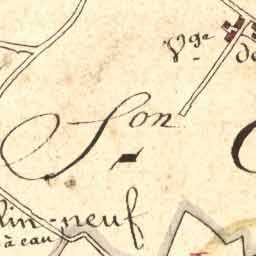 Vge
de
Son
lin-neuf
à eau